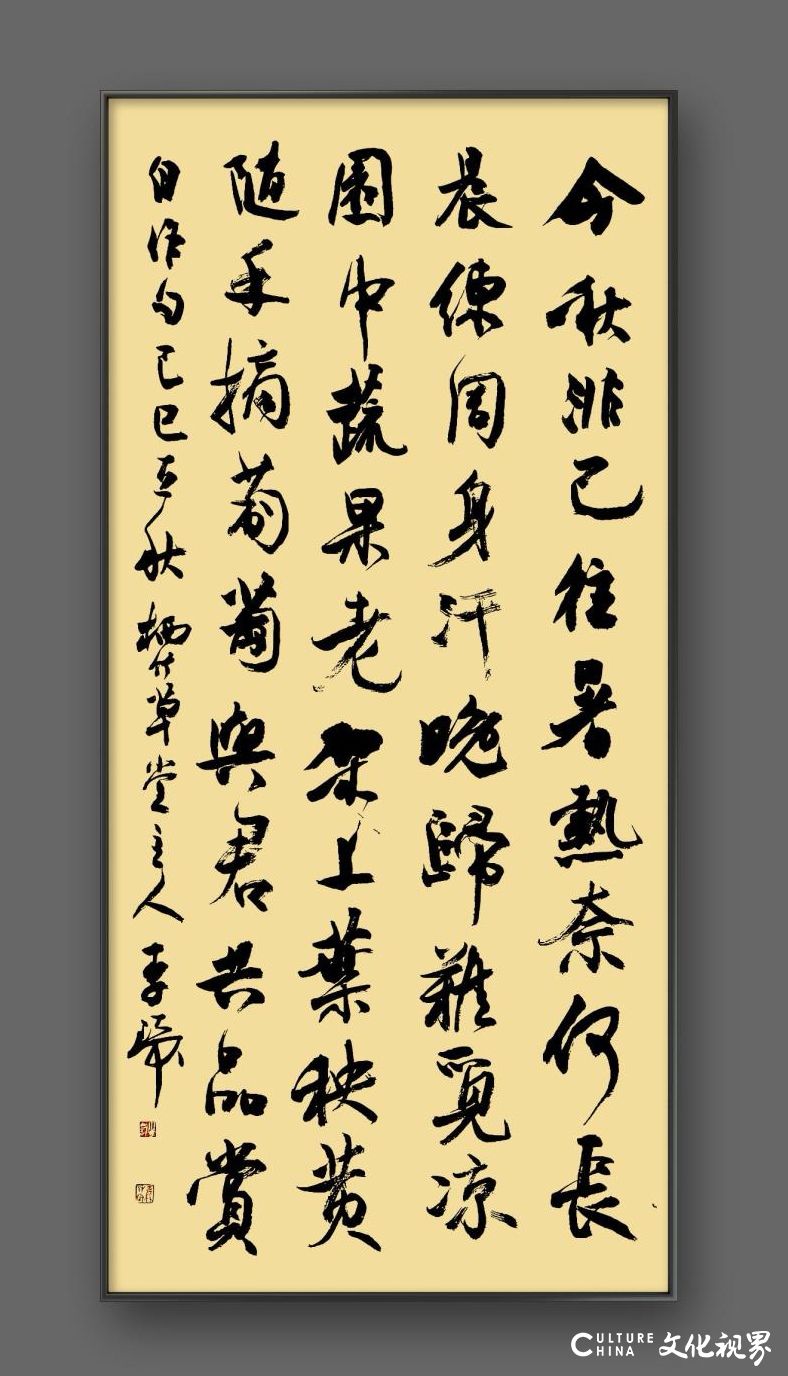 今秋非已往暑熱奈何長
晨練周身汗晚歸難覓凉
園中蔬果老架上葉秧黄
随手摘葡萄與君共品賞
自作句己巳立秋栖竹草堂主人李
CULTURE CHINA 文化视界